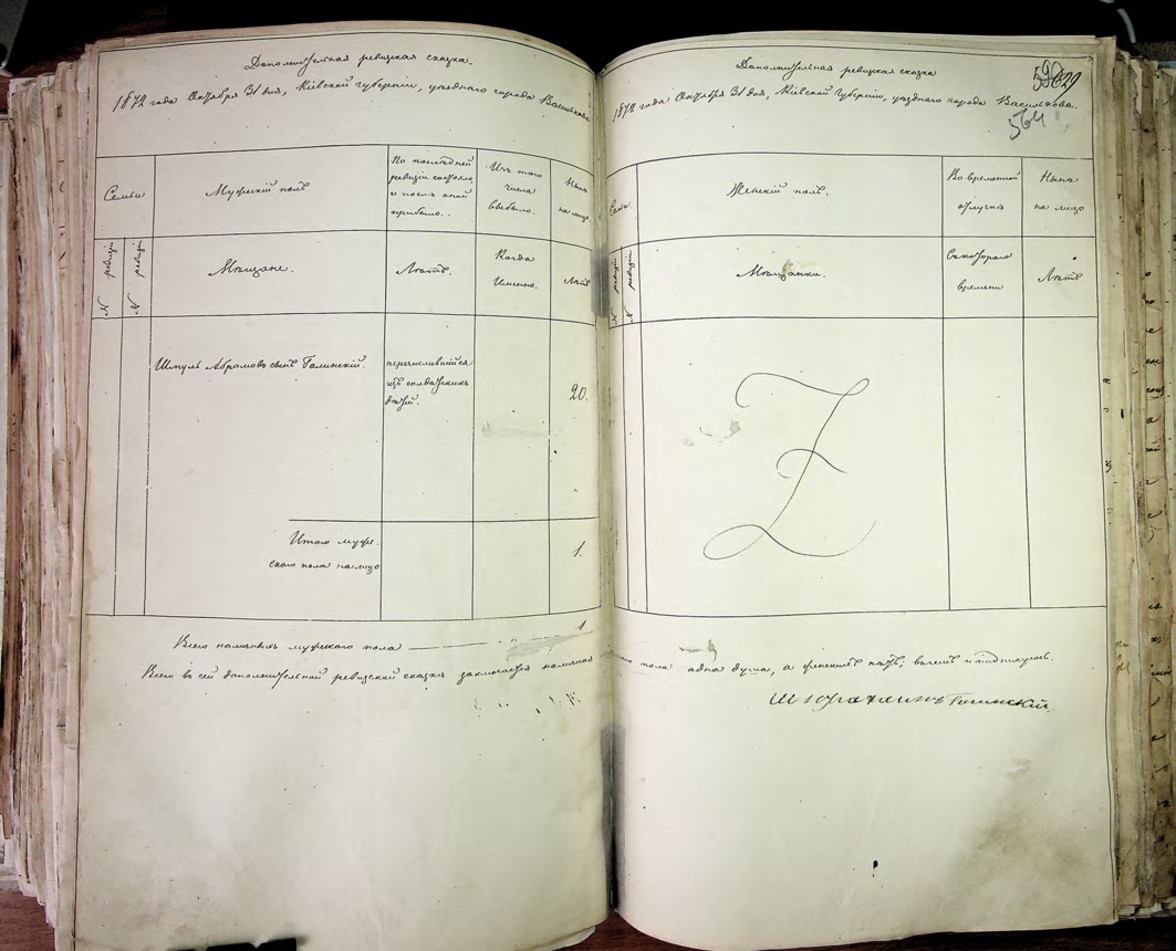 Дополнительная ревизская сказка.
1872 года Октября 31 дня, Кіевской губерніи, уезднаго города Василькова
Семьи
Мужескій полъ
По последней
ревизіи состояло
и после оной
прибыло.
Изъ того
числа
выбыло.
Ныне
на лицо
№ ревизіи
№ ревизіи
Мещане.
Летъ.
Когда
Именно.
Летъ
Шмуль Абрамовъ сынъ Галинскій.
перечислившійся
изъ солдатскихъ
детей.
20.
Итого муже-
скаго пола на лицо
1.
Всего наличныхъ мужескаго пола 1
Всего въ сей дополнительной ревизской сказке заключается наличная
Дополнительная ревизская сказка
1872 года Октября 31 дня, Кіевской губерніи, уезднаго города Василькова.
564
Семьи
Женскій полъ.
Во временной
отлучке
Ныне
на лицо
№ ревизіи
№ ревизіи
Мещанки.
Съ котораго
времени
Летъ
пола одна душа, а женскихъ нетъ; въ чемъ и подписуюсь.
Галинскій